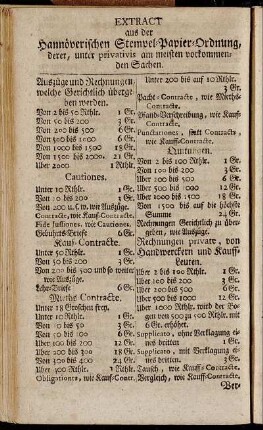 EXTRACT
aus der
Hannöverischen Stempel-Papier-Ordnung,
derer, unter privativis am meisten vorkommen-
den Sachen.
Auszüge und Rechnungen,
welche Gerichtlich überge-
ben werden.
Von 2 bis 50 Rthlr. 1 Gr.
Von 50 bis 200 3 Gr.
Von 200 bis 500 6 Gr.
Von 500 bis 1000 12 Gr.
Von 1000 bis 1500 18 Gr.
Von 1500 bis 2000 21 Gr.
Uber 2000 1 Rthlr.
Cautiones.
Unter 10 Rthlr. 1 Gr.
Von 10 bis 200 1 Gr.
Von 200 u. s. w. wie Auszüge.
Contracte, wie Kauf-Contracte.
Fide jussiones, wie Cautiones.
Gebuhrts-Briefe 6 Gr.
Kauf-Contracte.
Unter 50 Rthlr. 1 Gr.
Von 50 bis 200 3 Gr.
Von 200 bis 500 und so weiter
wie Auszüge.
Lehr-Briefe 6 Gr.
Mieths Contracte.
Unter 18 Groschen frey.
Unter 10 Rthlr. 1 Gr.
Von 10 bis 50 3 Gr.
Von 50 bis 100 6 Gr.
Uber 100 bis 200 12 Gr.
Uber 200 bis 300 18 Gr.
Uber 300 bis 400 24 Gr.
Uber 400 Rthlr. 1 Rthlr.
Obligationes, wie Kauff-Contr.
Unter 200 bis auf 10 Rthlr.
3 Gr.
Pacht-Contracte, wie Mieths-
Contracte.
Pfand-Verschreibung, wie Kauf-
Contracte.
Punctationes, statt Contracte
wie Kauff-Contracte.
Quitungen.
Von 2 bis 100 Rthlr. 1 Gr.
Von 100 bis 200 2 Gr.
Von 200 bis 500 3 Gr.
Von 500 bis 1000 6 Gr.
Von 1000 bis 1500 18 Gr.
Von 1500 bis auf die höchste
Summe 24 Gr.
Rechnungen Gerichtlich zu über-
geben, wie Auszüge.
Rechnungen private, von
Handwerckern und Kauff-
Leuten.
Uber 2 bis 100 Rthlr. 1 Gr.
Uber 100 bis 200 2 Gr.
Uber 200 bis 500 6 Gr.
Uber 500 bis 1000 12 Gr.
Uber 1000 Rthlr. wird der Bo-
gen von 500 zu 500 Rthlr. mit
6 Gr. erhöhet.
Supplicato, ohne Verklagung ei-
nes dritten 1 Gr.
Supplicato, mit Verklagung ei-
nes dritten 3 Gr.
Tausch, wie Kauff-Contracte.
Vergleich, wie Kauff-Contracte.
Ver-